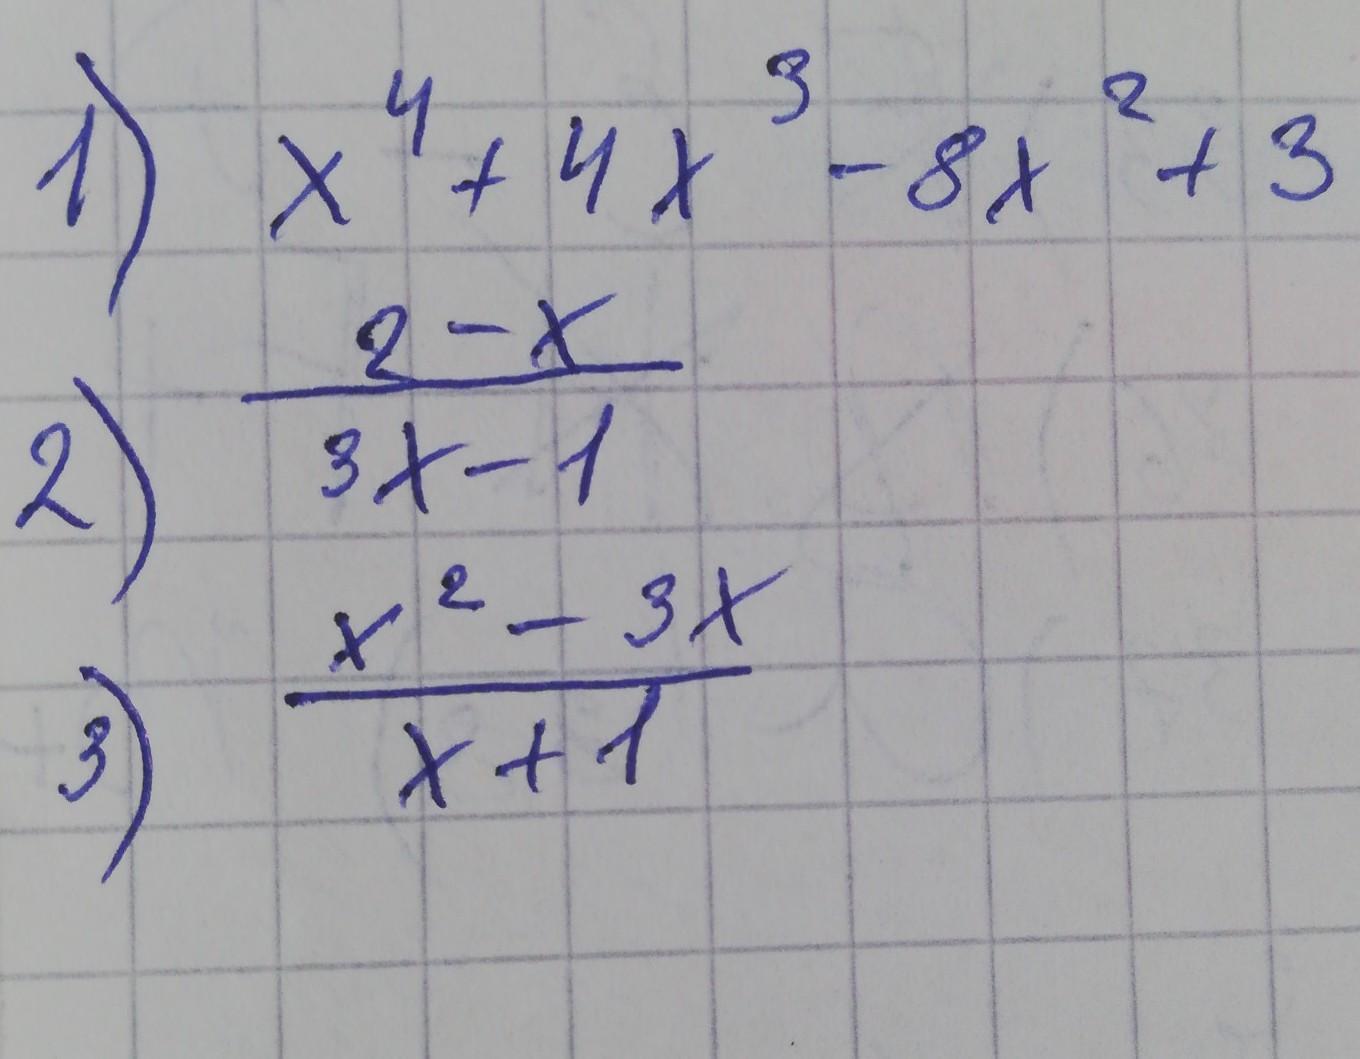 1) x⁴ + 4x³ - 8x² + 3
2) (2 - x)/(3x - 1)
3) (x² - 3x)/(x + 1)